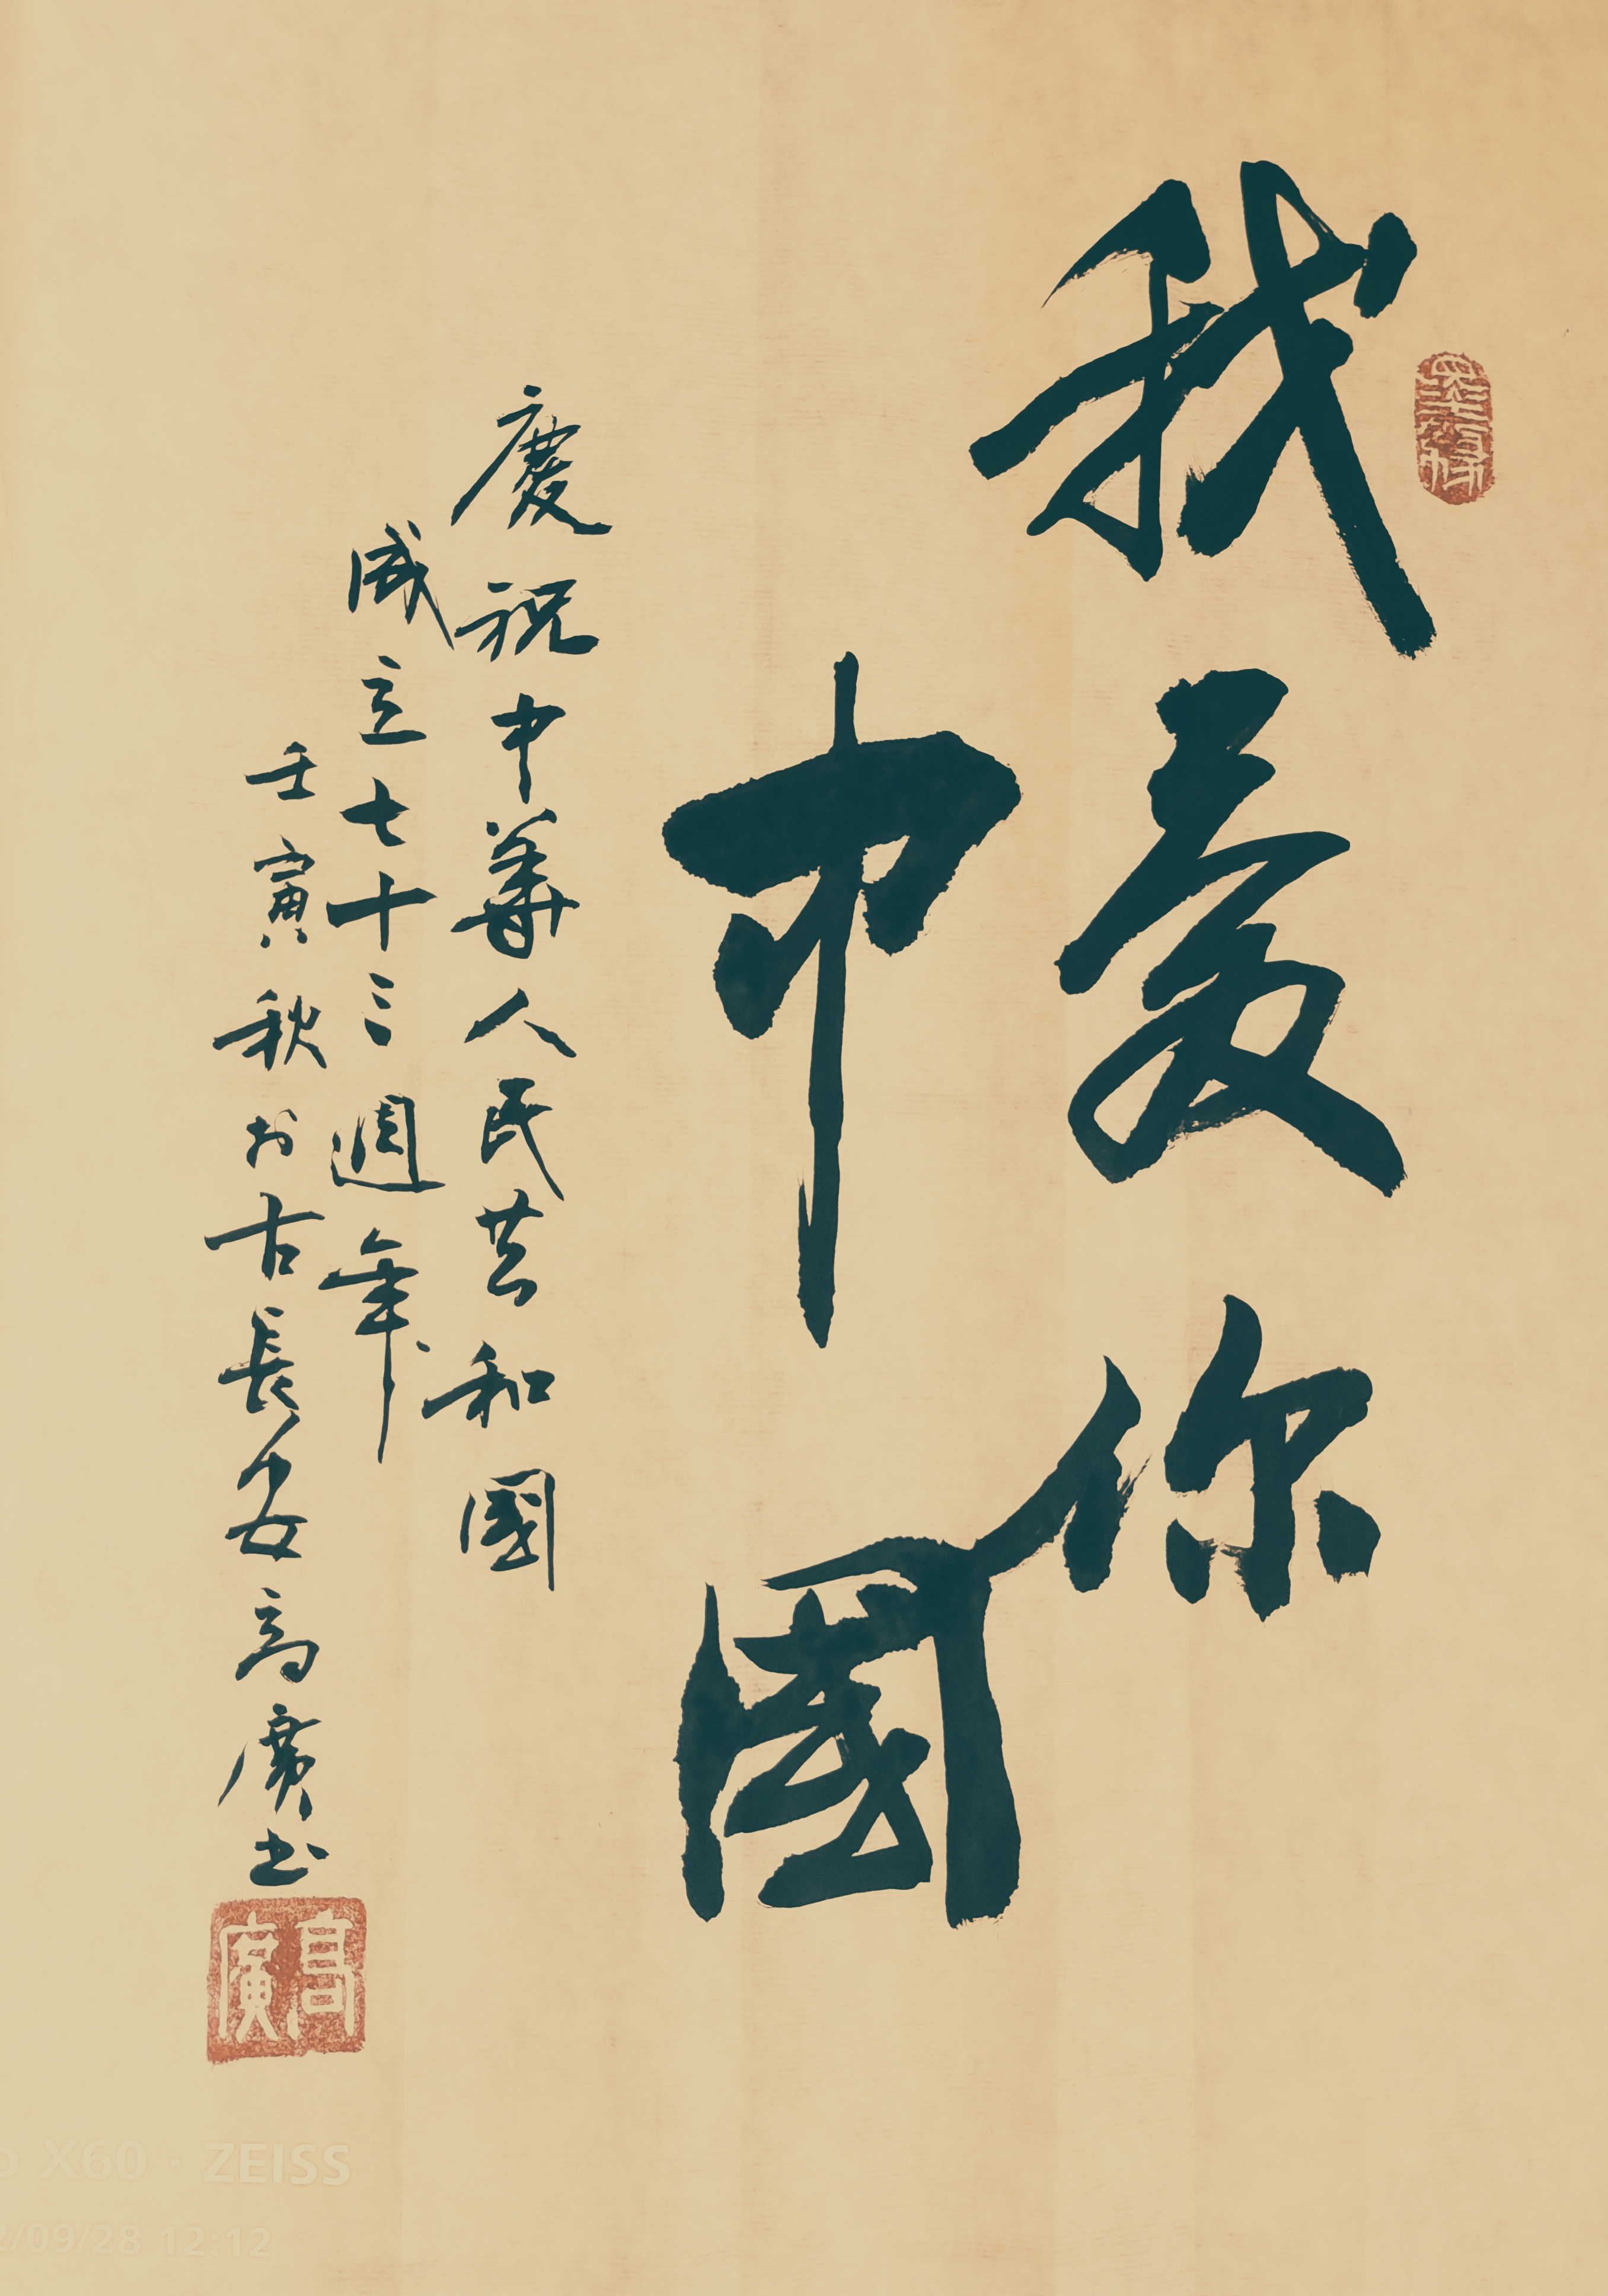 我愛你
中國
慶祝中華人民共和國
成立七十三週年
壬寅秋於古長安高廣書
高廣
X60 · ZEISS
/09/28 12:12